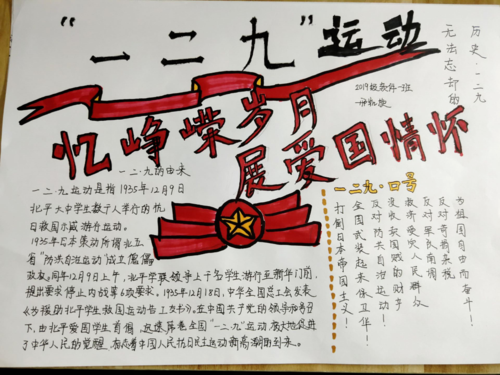 “一二九”运动
历史·一二九
无法忘却的
2019级软件一班
忆峥嵘岁月
展爱国情怀
一二·九的由来
一二·九运动是指1935年12月9日
北平大中学生数千人举行的抗
日救国示威游行运动。
1935年日本策动所谓华北五
省“防共自治运动”成立傀儡
政权。同年12月9日上午，北平学联领导上千名学生游行至新华门前，
提出要求停止内战等6项要求。1935年12月18日，中华全国总工会发表
《为援助北平学生救国运动告工友书》。在中国共产党的领导和号召
下，由北平爱国学生首倡，迅速席卷全国“一二·九”运动，有力地促进
了中华人民的觉醒，标志着中国人民抗日民主运动新高潮的到来。
一二九·口号
为祖国自由而奋斗！
反对秦桧亲视
反对军民南调
救济受灾人民群众
没收卖国贼的财产
反对防共自治运动！
全国武装起来保卫华北！
打倒日本帝国主义！